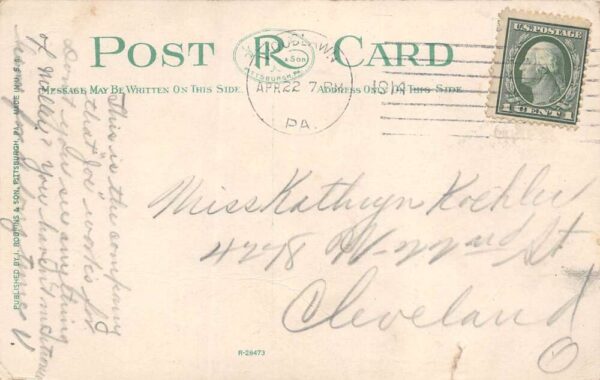 POST CARD
R
& SON
PITTSBURGH, PA.
MESSAGE MAY BE WRITTEN ON THIS SIDE
ADDRESS ONLY ON THIS SIDE
APR 22 7 PM
1914
PA.
U.S. POSTAGE
1 CENT 1
This is the company
that "Joe" works for
Don't you see anything
of Milly? You haven't mentioned
Miss Kathryn Koehler
4228 W-22nd St
Cleveland
O
PUBLISHED BY I. ROBBINS & SON, PITTSBURGH, PA. MADE IN U.S.A.
R-28473